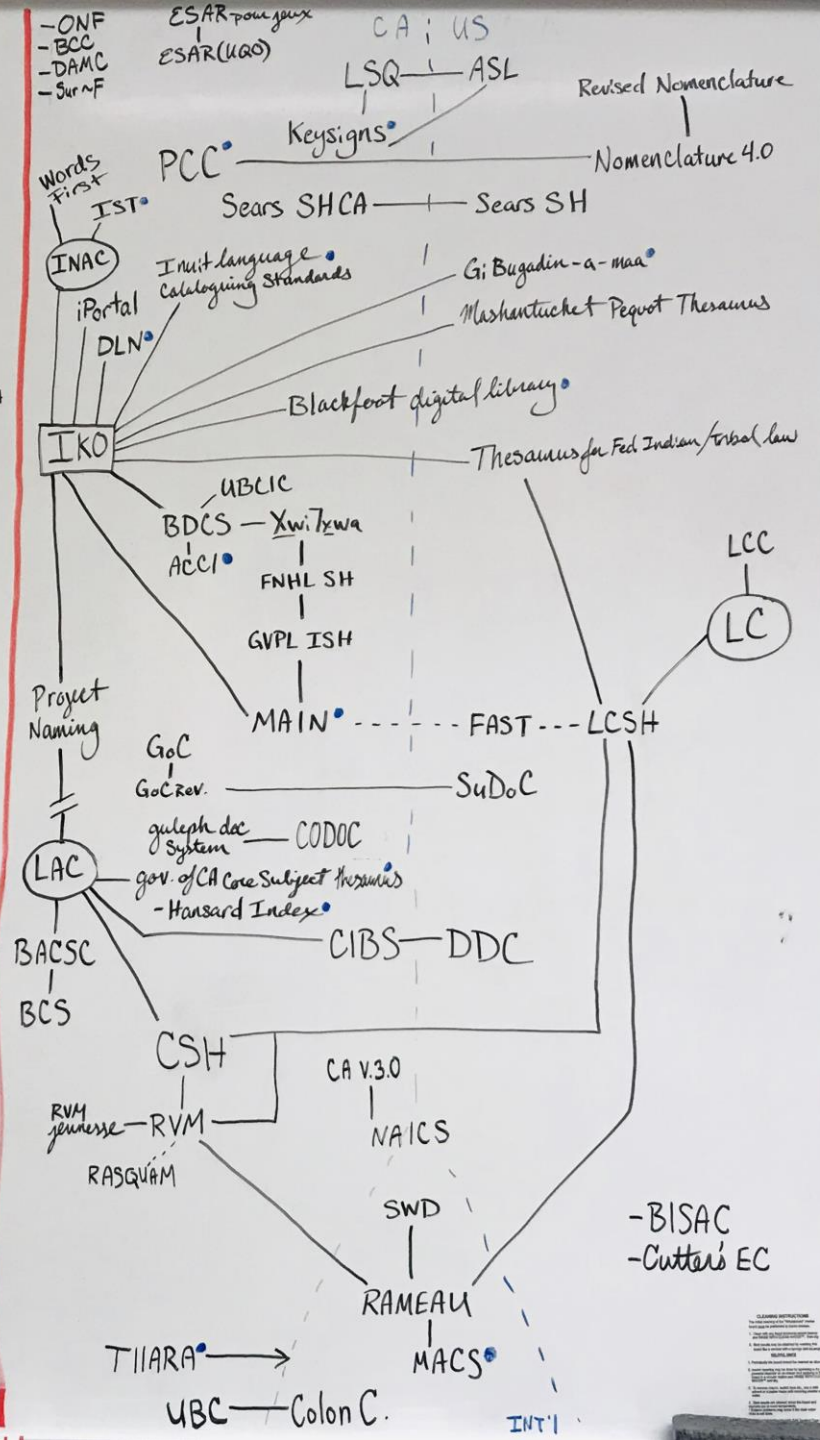 -ONF
-BCC
-DAMC
-Sur~F
ESAR-pour jeux
ESAR(UQO)
CA ¦ US
LSQ — ASL
Keysigns
Revised Nomenclature
PCC — Nomenclature 4.0
Words First
IST
Sears SHCA — Sears SH
INAC
Inuit language
Cataloguing Standards
Gi Bugadin-a-maa
iPortal
Mashantucket Pequot Thesaurus
DLN
Blackfoot digital library
IKO
Thesaurus for Fed Indian/tribal law
UBCIC
BDCS — Xwi7xwa
ACCI
FNHL SH
LCC
GVPL ISH
LC
Project
Naming
MAIN - - - FAST - - - LCSH
GoC
GoC Rev. — SuDoC
guleph doc
System — CODOC
LAC
gov. of CA Core Subject thesaurus
-Hansard Index
CIBS — DDC
BACSC
BCS
CSH
CA V.3.0
RVM
jeunesse — RVM
NAICS
RASQUAM
SWD
-BISAC
-Cutter's EC
RAMEAU
TIIARA →
MACS
UBC — Colon C.
INT'l
CLEANING INSTRUCTIONS